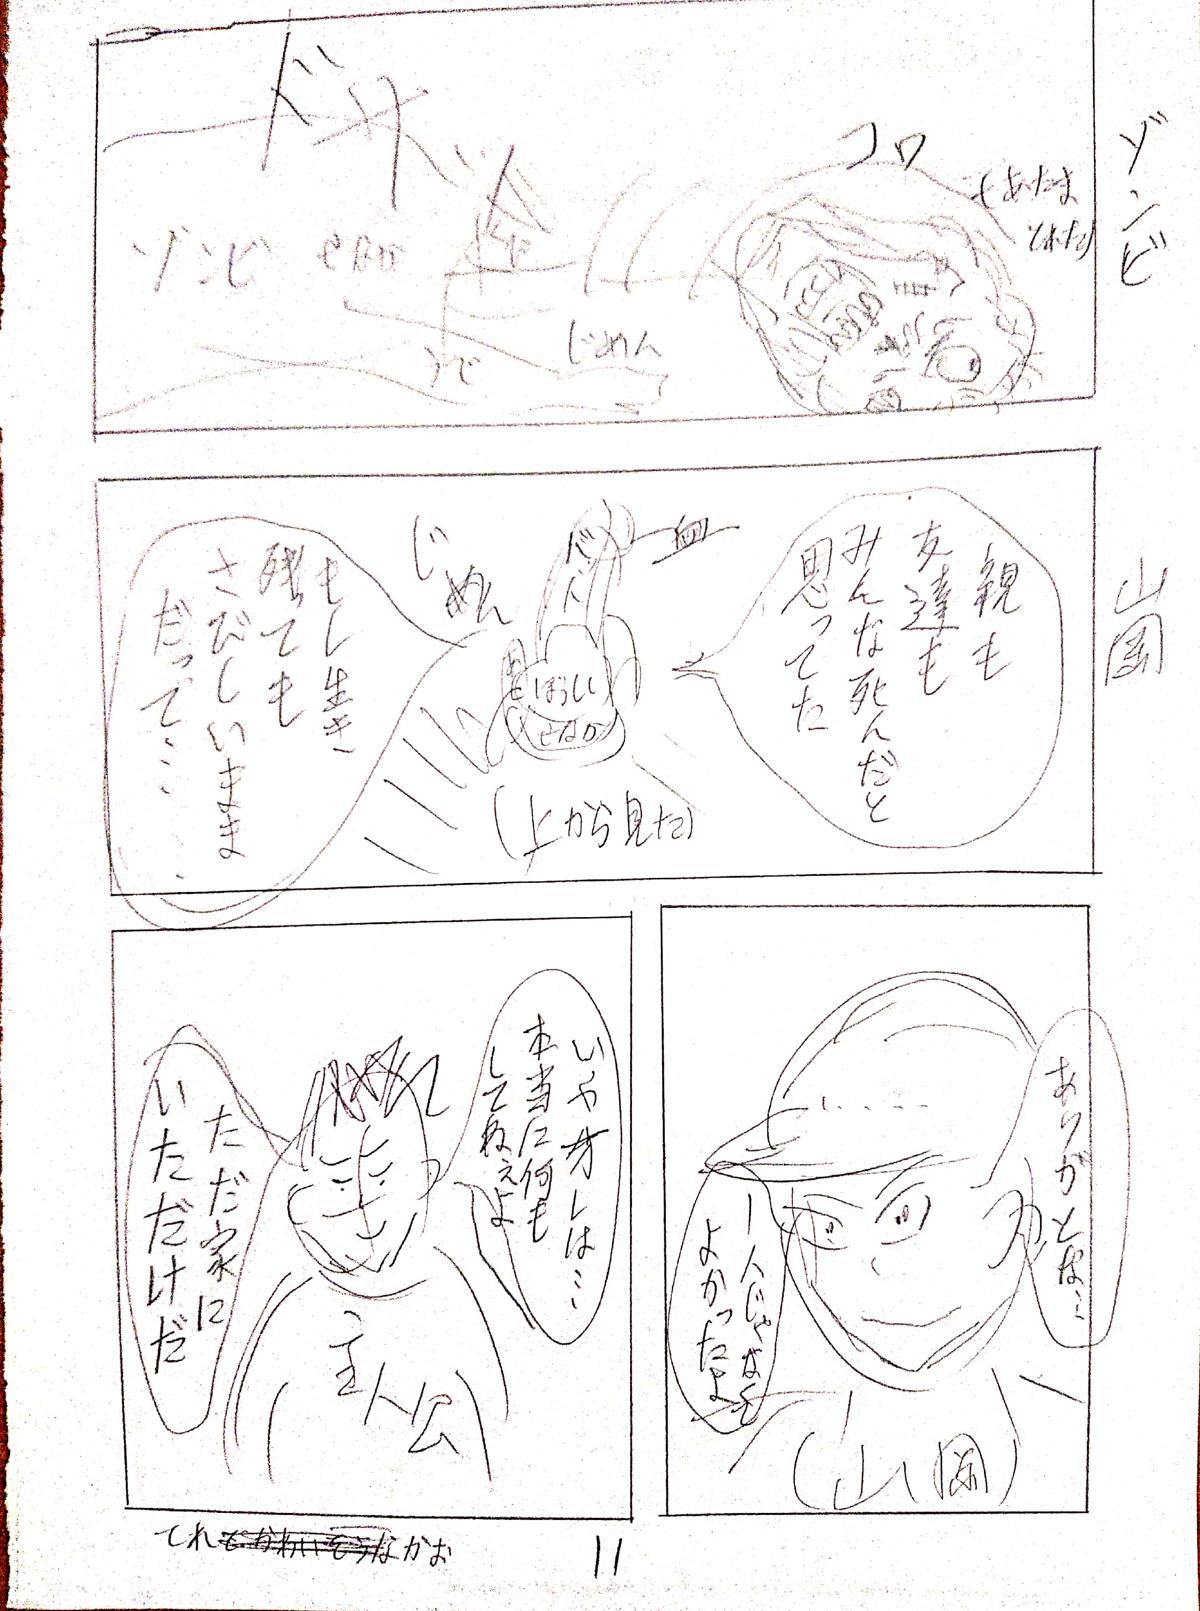 ゾンビ
ドサッ
コロ
あたま
とれた
ゾンビ
せなか
うで
じめん
山岡
親も
友達も
みんな死んだと
思ってた
血
バット
ぼうし
せなか
じめん
(上から見た)
もし生き
残っても
さびしいまま
だって…
ありがとな…
一人じゃなくて
よかったよ
(山岡)
いやオレは…
本当に何も
してねぇよ
ただ家に
いただけだ
主人公
てれなかお
11